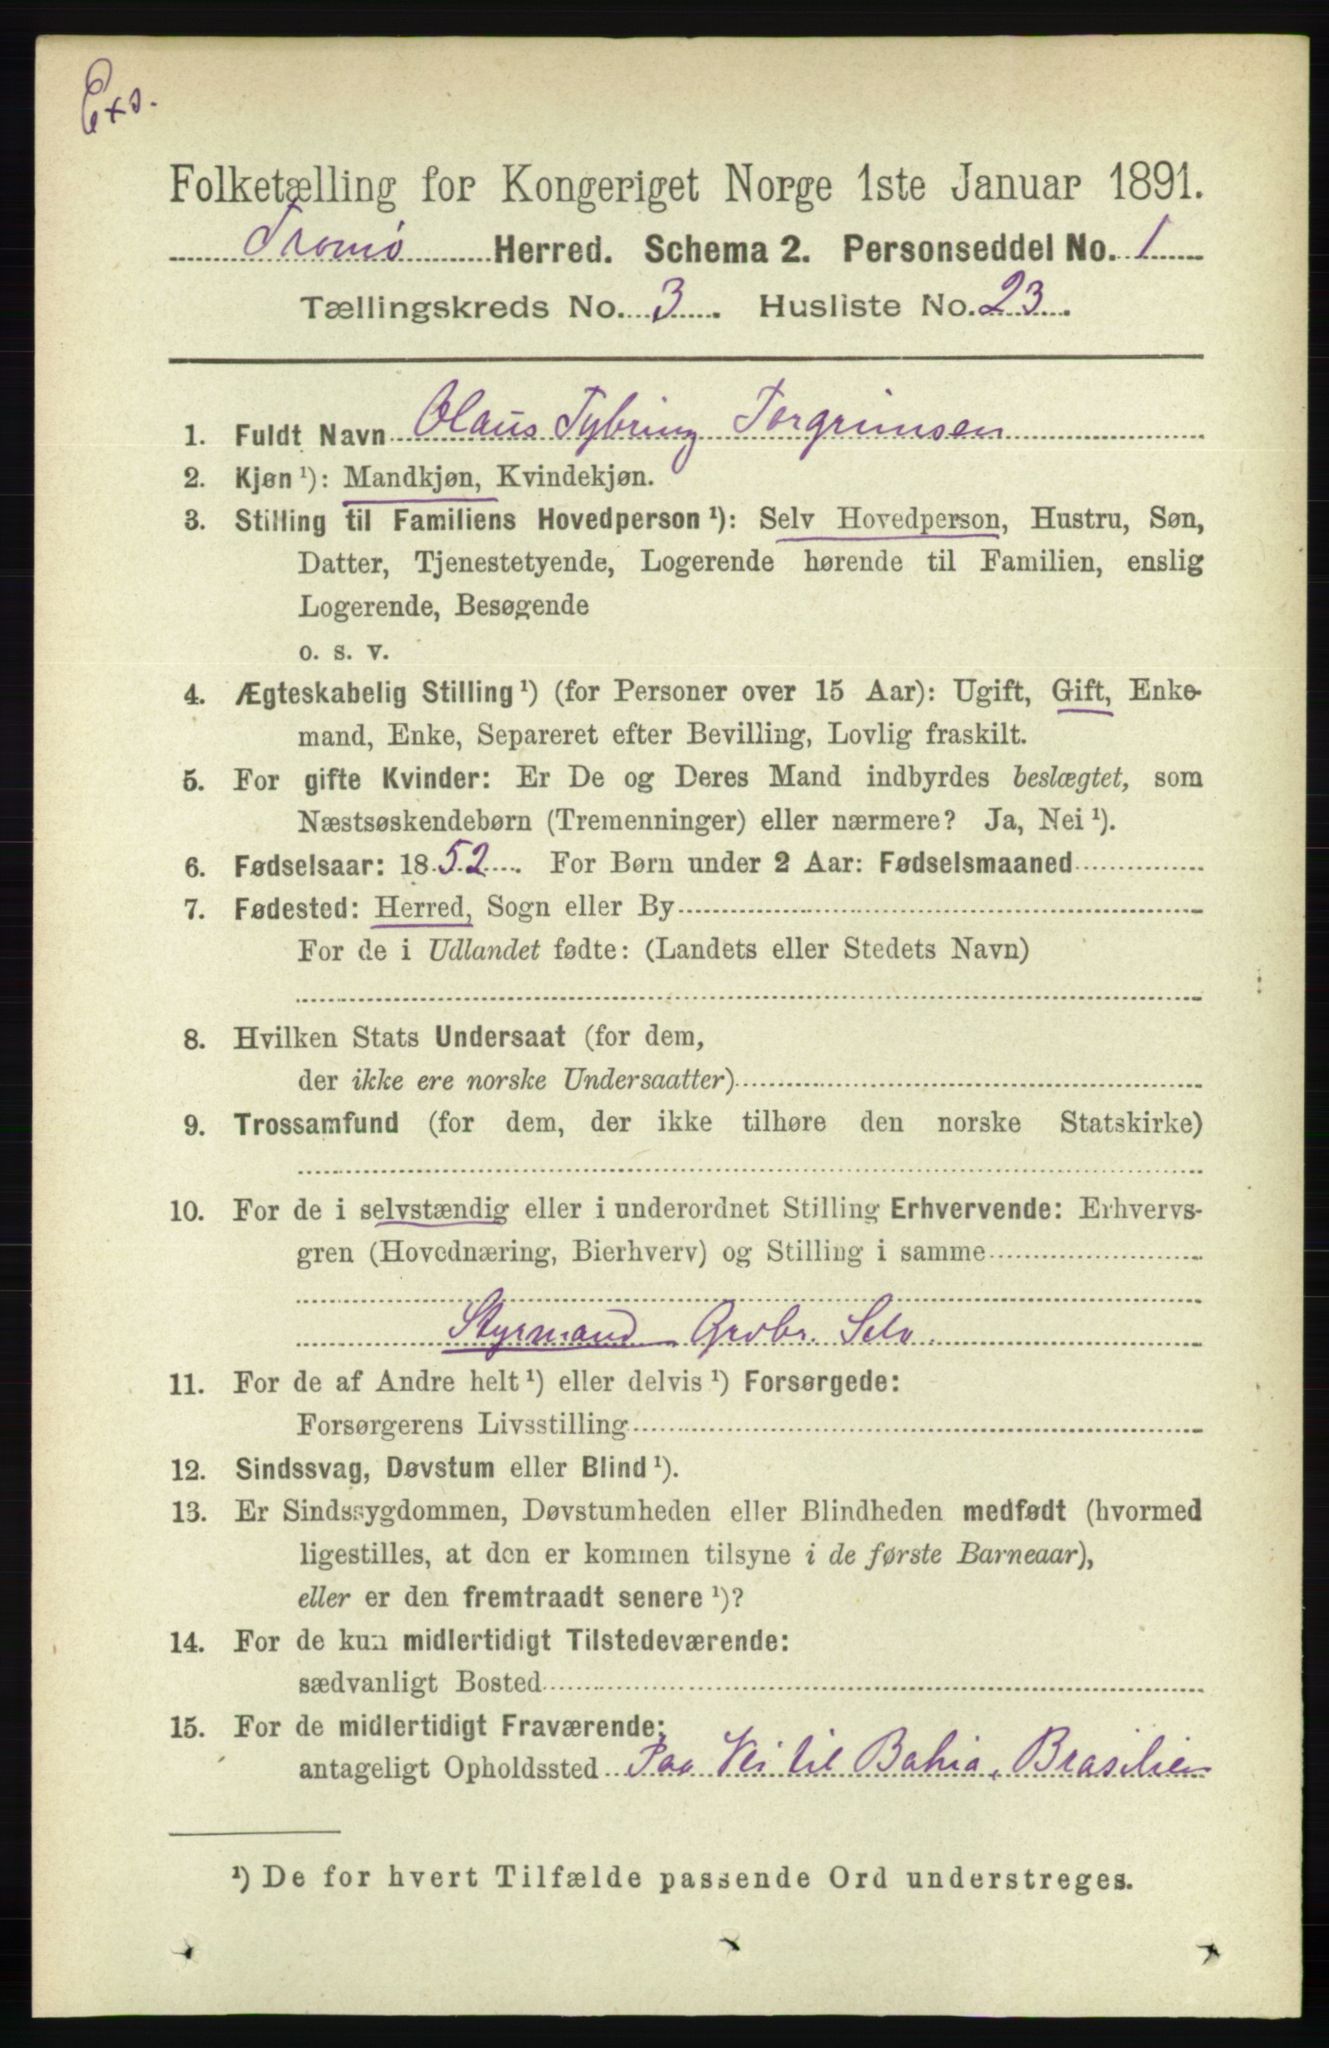 Exs.
Folketælling for Kongeriget Norge 1ste Januar 1891.
Tromø Herred. Schema 2. Personseddel No. 1
Tællingskreds No. 3. Husliste No. 23.
1. Fuldt Navn Olaus Tybring Torgrimsen
2. Kjøn ¹): Mandkjøn, Kvindekjøn.
3. Stilling til Familiens Hovedperson ¹): Selv Hovedperson, Hustru, Søn,
Datter, Tjenestetyende, Logerende hørende til Familien, enslig
Logerende, Besøgende
o. s. v.
4. Ægteskabelig Stilling ¹) (for Personer over 15 Aar): Ugift, Gift, Enke-
mand, Enke, Separeret efter Bevilling, Lovlig fraskilt.
5. For gifte Kvinder: Er De og Deres Mand indbyrdes beslægtet, som
Næstsøskendebørn (Tremenninger) eller nærmere? Ja, Nei ¹).
6. Fødselsaar: 1852. For Børn under 2 Aar: Fødselsmaaned
7. Fødested: Herred, Sogn eller By
For de i Udlandet fødte: (Landets eller Stedets Navn)
8. Hvilken Stats Undersaat (for dem,
der ikke ere norske Undersaatter)
9. Trossamfund (for dem, der ikke tilhøre den norske Statskirke)
10. For de i selvstændig eller i underordnet Stilling Erhvervende: Erhvervs-
gren (Hovednæring, Bierhverv) og Stilling i samme
Styrmand Grdbr. Selv.
11. For de af Andre helt ¹) eller delvis ¹) Forsørgede:
Forsørgerens Livsstilling
12. Sindssvag, Døvstum eller Blind ¹).
13. Er Sindssygdommen, Døvstumheden eller Blindheden medfødt (hvormed
ligestilles, at den er kommen tilsyne i de første Barneaar),
eller er den fremtraadt senere ¹)?
14. For de kun midlertidigt Tilstedeværende:
sædvanligt Bosted
15. For de midlertidigt Fraværende:
antageligt Opholdssted Paa Vei til Bahia, Brasilien
¹) De for hvert Tilfælde passende Ord understreges.